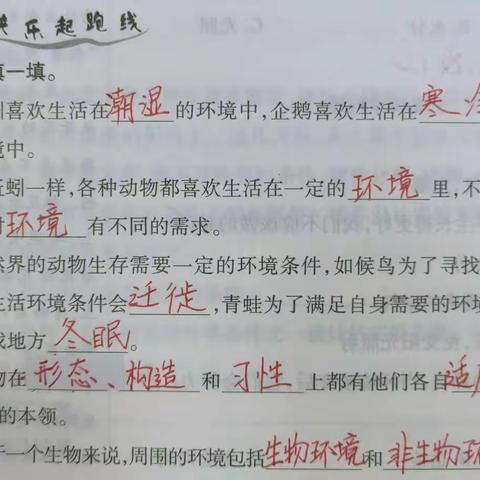 乐起跑线
填一填。
喜欢生活在潮湿的环境中,企鹅喜欢生活在寒冷
境中。
蚯蚓一样,各种动物都喜欢生活在一定的环境里,不
环境有不同的需求。
然界的动物生存需要一定的环境条件,如候鸟为了寻找
生活环境条件会迁徙,青蛙为了满足自身需要的环境
找地方冬眠。
物在形态、构造和习性上都有他们各自适应
的本领。
于一个生物来说,周围的环境包括生物环境和非生物环